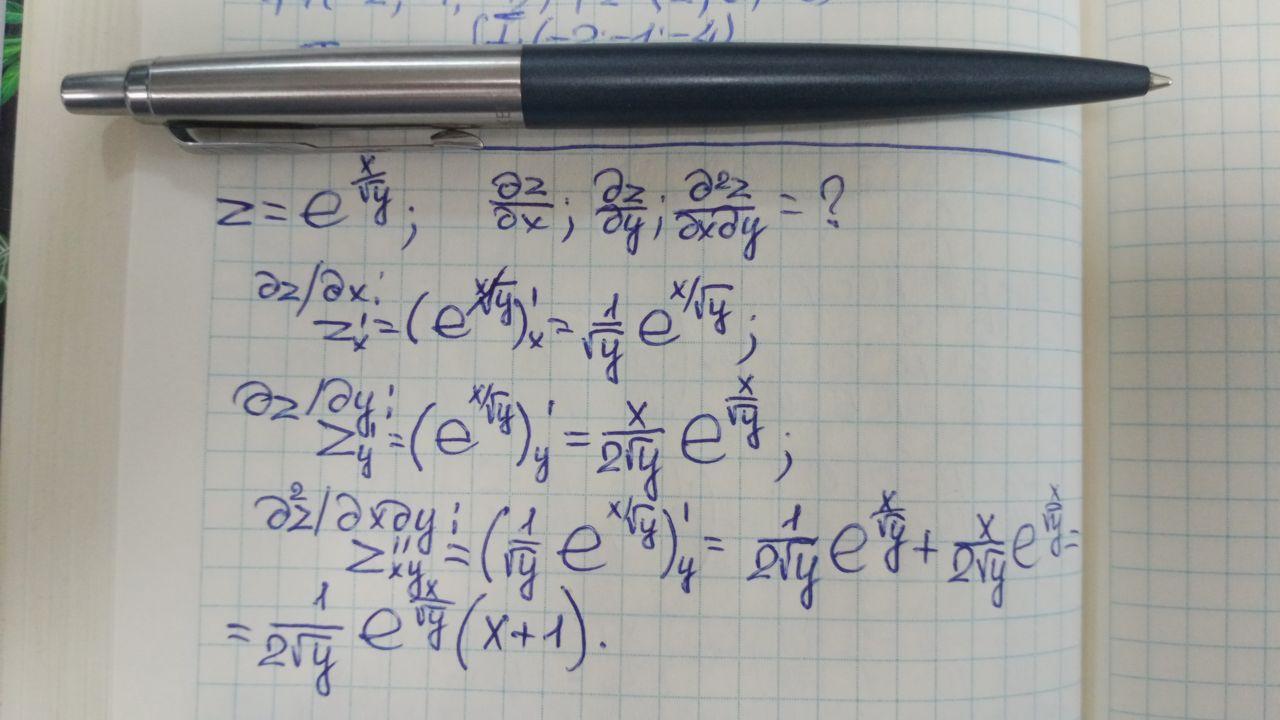 (-2; -1; -4)
z = e^(x/√y); ∂z/∂x; ∂z/∂y; ∂²z/∂x∂y = ?
∂z/∂x:
z'ₓ = (e^(x/√y))'ₓ = 1/√y e^(x/√y);
∂z/∂y:
z'ᵧ = (e^(x/√y))'ᵧ = x/(2√y) e^(x/√y);
∂²z/∂x∂y:
z''ₓᵧ = (1/√y e^(x/√y))'ᵧ = 1/(2√y) e^(x/√y) + x/(2√y) e^(x/√y) =
= 1/(2√y) e^(x/√y) (x+1).